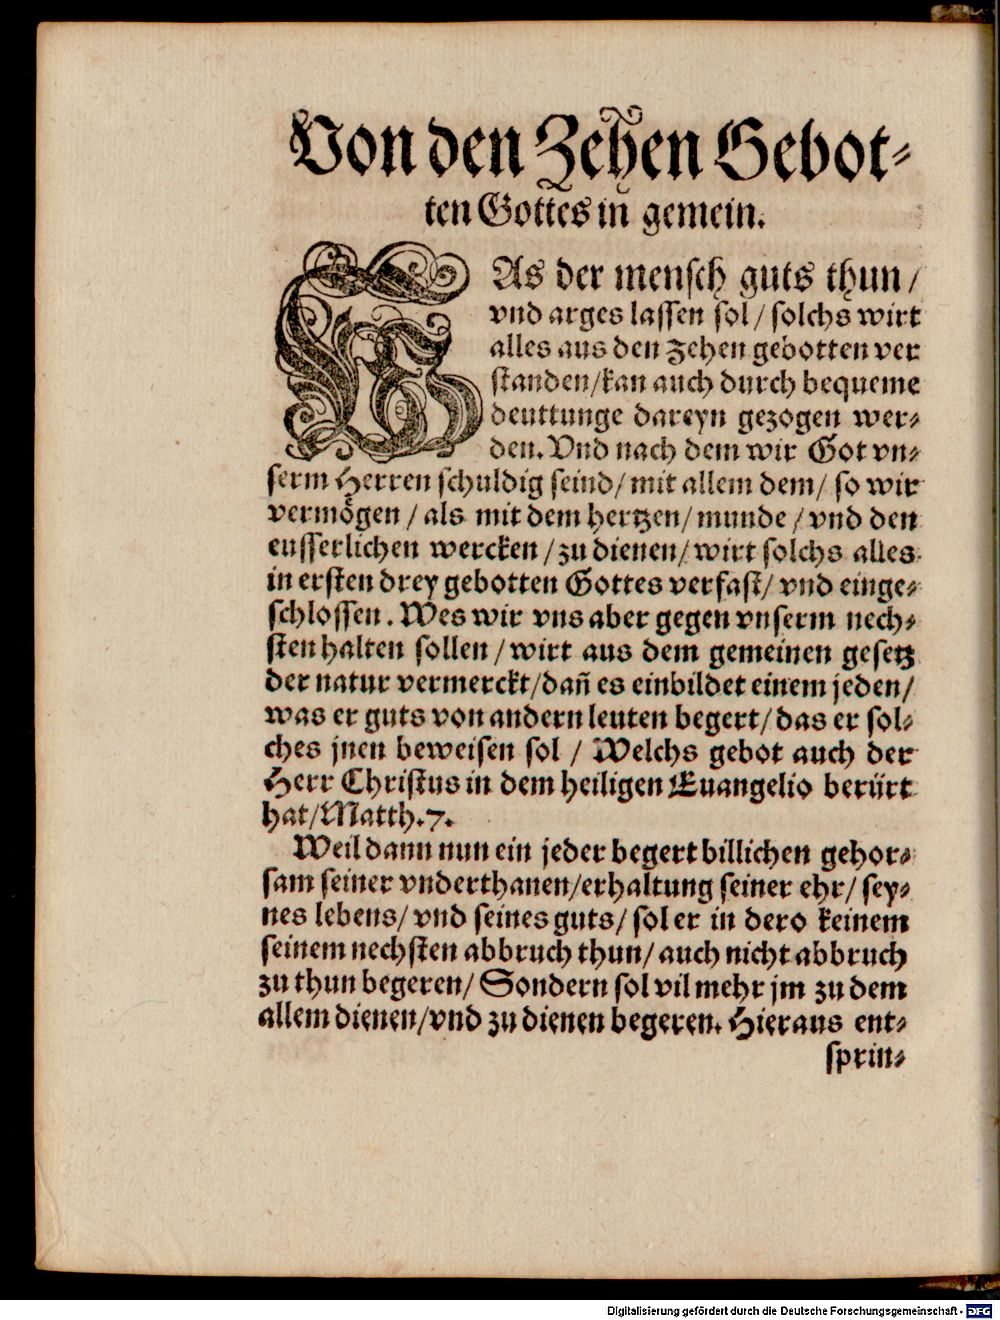 Von den Zehen Gebot⸗
ten Gottes in gemein.
WAs der mensch guts thun /
vnd arges lassen sol / solchs wirt
alles aus den zehen gebotten ver
standen/kan auch durch bequeme
deuttunge dareyn gezogen wer⸗
den. Vnd nach dem wir Got vn⸗
serm Herren schuldig seind/ mit allem dem/ so wir
vermögen / als mit dem hertzen/ munde / vnd den
eusserlichen wercken / zu dienen/ wirt solchs alles
in ersten drey gebotten Gottes verfast/ vnd einge⸗
schlossen. Wes wir vns aber gegen vnserm nech⸗
sten halten sollen / wirt aus dem gemeinen gesetz
der natur vermerckt/dañ es einbildet einem jeden/
was er guts von andern leuten begert/ das er sol⸗
ches jnen beweisen sol / Welchs gebot auch der
Herr Christus in dem heiligen Euangelio berürt
hat/Matth.7.
Weil dann nun ein jeder begert billichen gehor⸗
sam seiner vnderthanen/erhaltung seiner ehr/ sey⸗
nes lebens/ vnd seines guts/ sol er in dero keinem
seinem nechsten abbruch thun/ auch nicht abbruch
zu thun begeren/ Sondern sol vil mehr jm zu dem
allem dienen/vnd zu dienen begeren. Hieraus ent⸗
sprin⸗
Digitalisierung gefördert durch die Deutsche Forschungsgemeinschaft - DFG